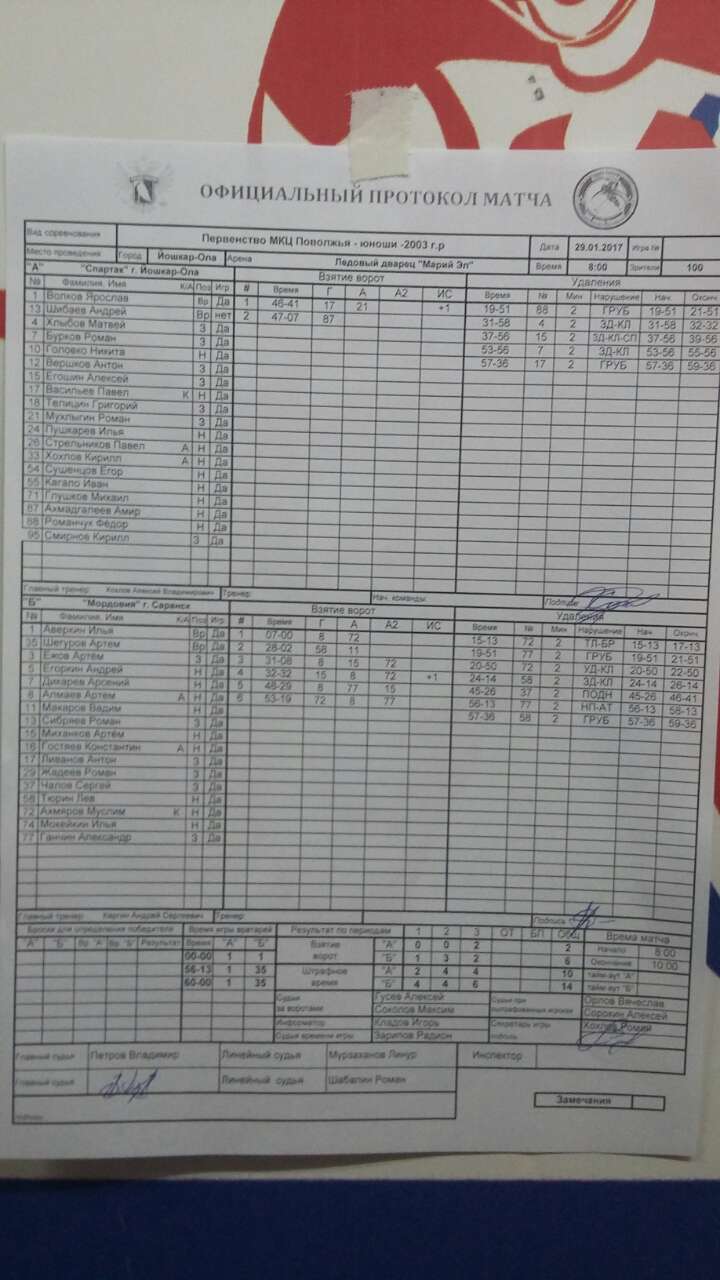 ОФИЦИАЛЬНЫЙ ПРОТОКОЛ МАТЧА
Вид соревнования Первенство МКЦ Поволжья - юноши -2003 г.р Дата 29.01.2017 Игра №
Место проведения Город Йошкар-Ола Арена Ледовый дворец "Марий Эл" Время 8:00 Зрители 100
"А" "Спартак" г. Йошкар-Ола Взятие ворот Удаления
№ Фамилия, Имя К/А Поз Игр # Время Г А А2 ИС Время № Мин Нарушение Нач. Оконч.
1 Волков Ярослав Вр Да 1 46-41 17 21 +1 19-51 88 2 ГРУБ 19-51 21-51
13 Шибаев Андрей Вр нет 2 47-07 87 31-58 4 2 ЗД-КЛ 31-58 32-32
4 Хлыбов Матвей З Да 37-56 15 2 ЗД-КЛ-СП 37-56 39-56
7 Бурков Роман З Да 53-56 7 2 ЗД-КЛ 53-56 55-56
10 Головко Никита Н Да 57-36 17 2 ГРУБ 57-36 59-36
12 Вершков Антон З Да
15 Егошин Алексей З Да
17 Васильев Павел К Н Да
18 Телицин Григорий З Да
21 Мухлыгин Роман З Да
24 Пушкарев Илья Н Да
26 Стрельников Павел А Н Да
33 Хохлов Кирилл А Н Да
54 Сушенцов Егор Н Да
55 Кагало Иван Н Да
71 Глушков Михаил Н Да
87 Ахмадгалеев Амир Н Да
88 Романчук Фёдор Н Да
95 Смирнов Кирилл З Да
Главный тренер Хохлов Алексей Владимирович Тренер Нач. команды Подпись
"Б" "Мордовия" г. Саранск Взятие ворот Удаления
№ Фамилия, Имя К/А Поз Игр # Время Г А А2 ИС Время № Мин Нарушение Нач. Оконч.
1 Аверкин Илья Вр Да 1 07-00 8 72 15-13 72 2 ТЛ-БР 15-13 17-13
35 Шегуров Артем Вр Да 2 28-02 58 11 19-51 77 2 ГРУБ 19-51 21-51
3 Ежов Артём З Да 3 31-08 8 15 72 20-50 72 2 УД-КЛ 20-50 22-50
5 Егоркин Андрей Н Да 4 32-32 15 8 72 +1 24-14 58 2 ЗД-КЛ 24-14 26-14
7 Дихарев Арсений Н Да 5 48-29 8 77 15 45-26 37 2 ПОДН 45-26 46-41
8 Алмаев Артем А Н Да 6 53-19 72 8 77 56-13 77 2 НП-АТ 56-13 58-13
11 Макаров Вадим Н Да 57-36 58 2 ГРУБ 57-36 59-36
13 Сибряев Роман З Да
15 Миханков Артём Н Да
16 Гостяев Константин А Н Да
17 Ливанов Антон З Да
29 Жадеев Роман З Да
37 Чапов Сергей З Да
58 Тюрин Лев Н Да
72 Ахмяров Муслим К Н Да
74 Мокейкин Илья Н Да
77 Ганчин Александр З Да
Главный тренер Каргин Андрей Сергеевич Тренер Подпись
Броски для определения победителя Время игры вратарей Результат по периодам 1 2 3 ОТ БП Общ Время матча
"А" "Б" Вр. "А" Вр. "Б" Результат Время "А" "Б" Взятие ворот "А" 0 0 2 2 Начало 8:00
00-00 1 1 "Б" 1 3 2 6 Окончание 10:00
56-13 1 35 Штрафное время "А" 2 4 4 10 тайм-аут "А"
60-00 1 35 "Б" 4 4 6 14 тайм-аут "Б"
Судьи за воротами Гусев Алексей Судьи при оштрафованных игроках Орлов Вячеслав
Соколов Максим Сорокин Алексей
Информатор Кладов Игорь Секретарь игры Хохлов
Судья времени игры Зарипов Радион подпись
Главный судья Петров Владимир Линейный судья Мурзаханов Линур Инспектор
Главный судья Линейный судья Шабалин Роман
Замечания